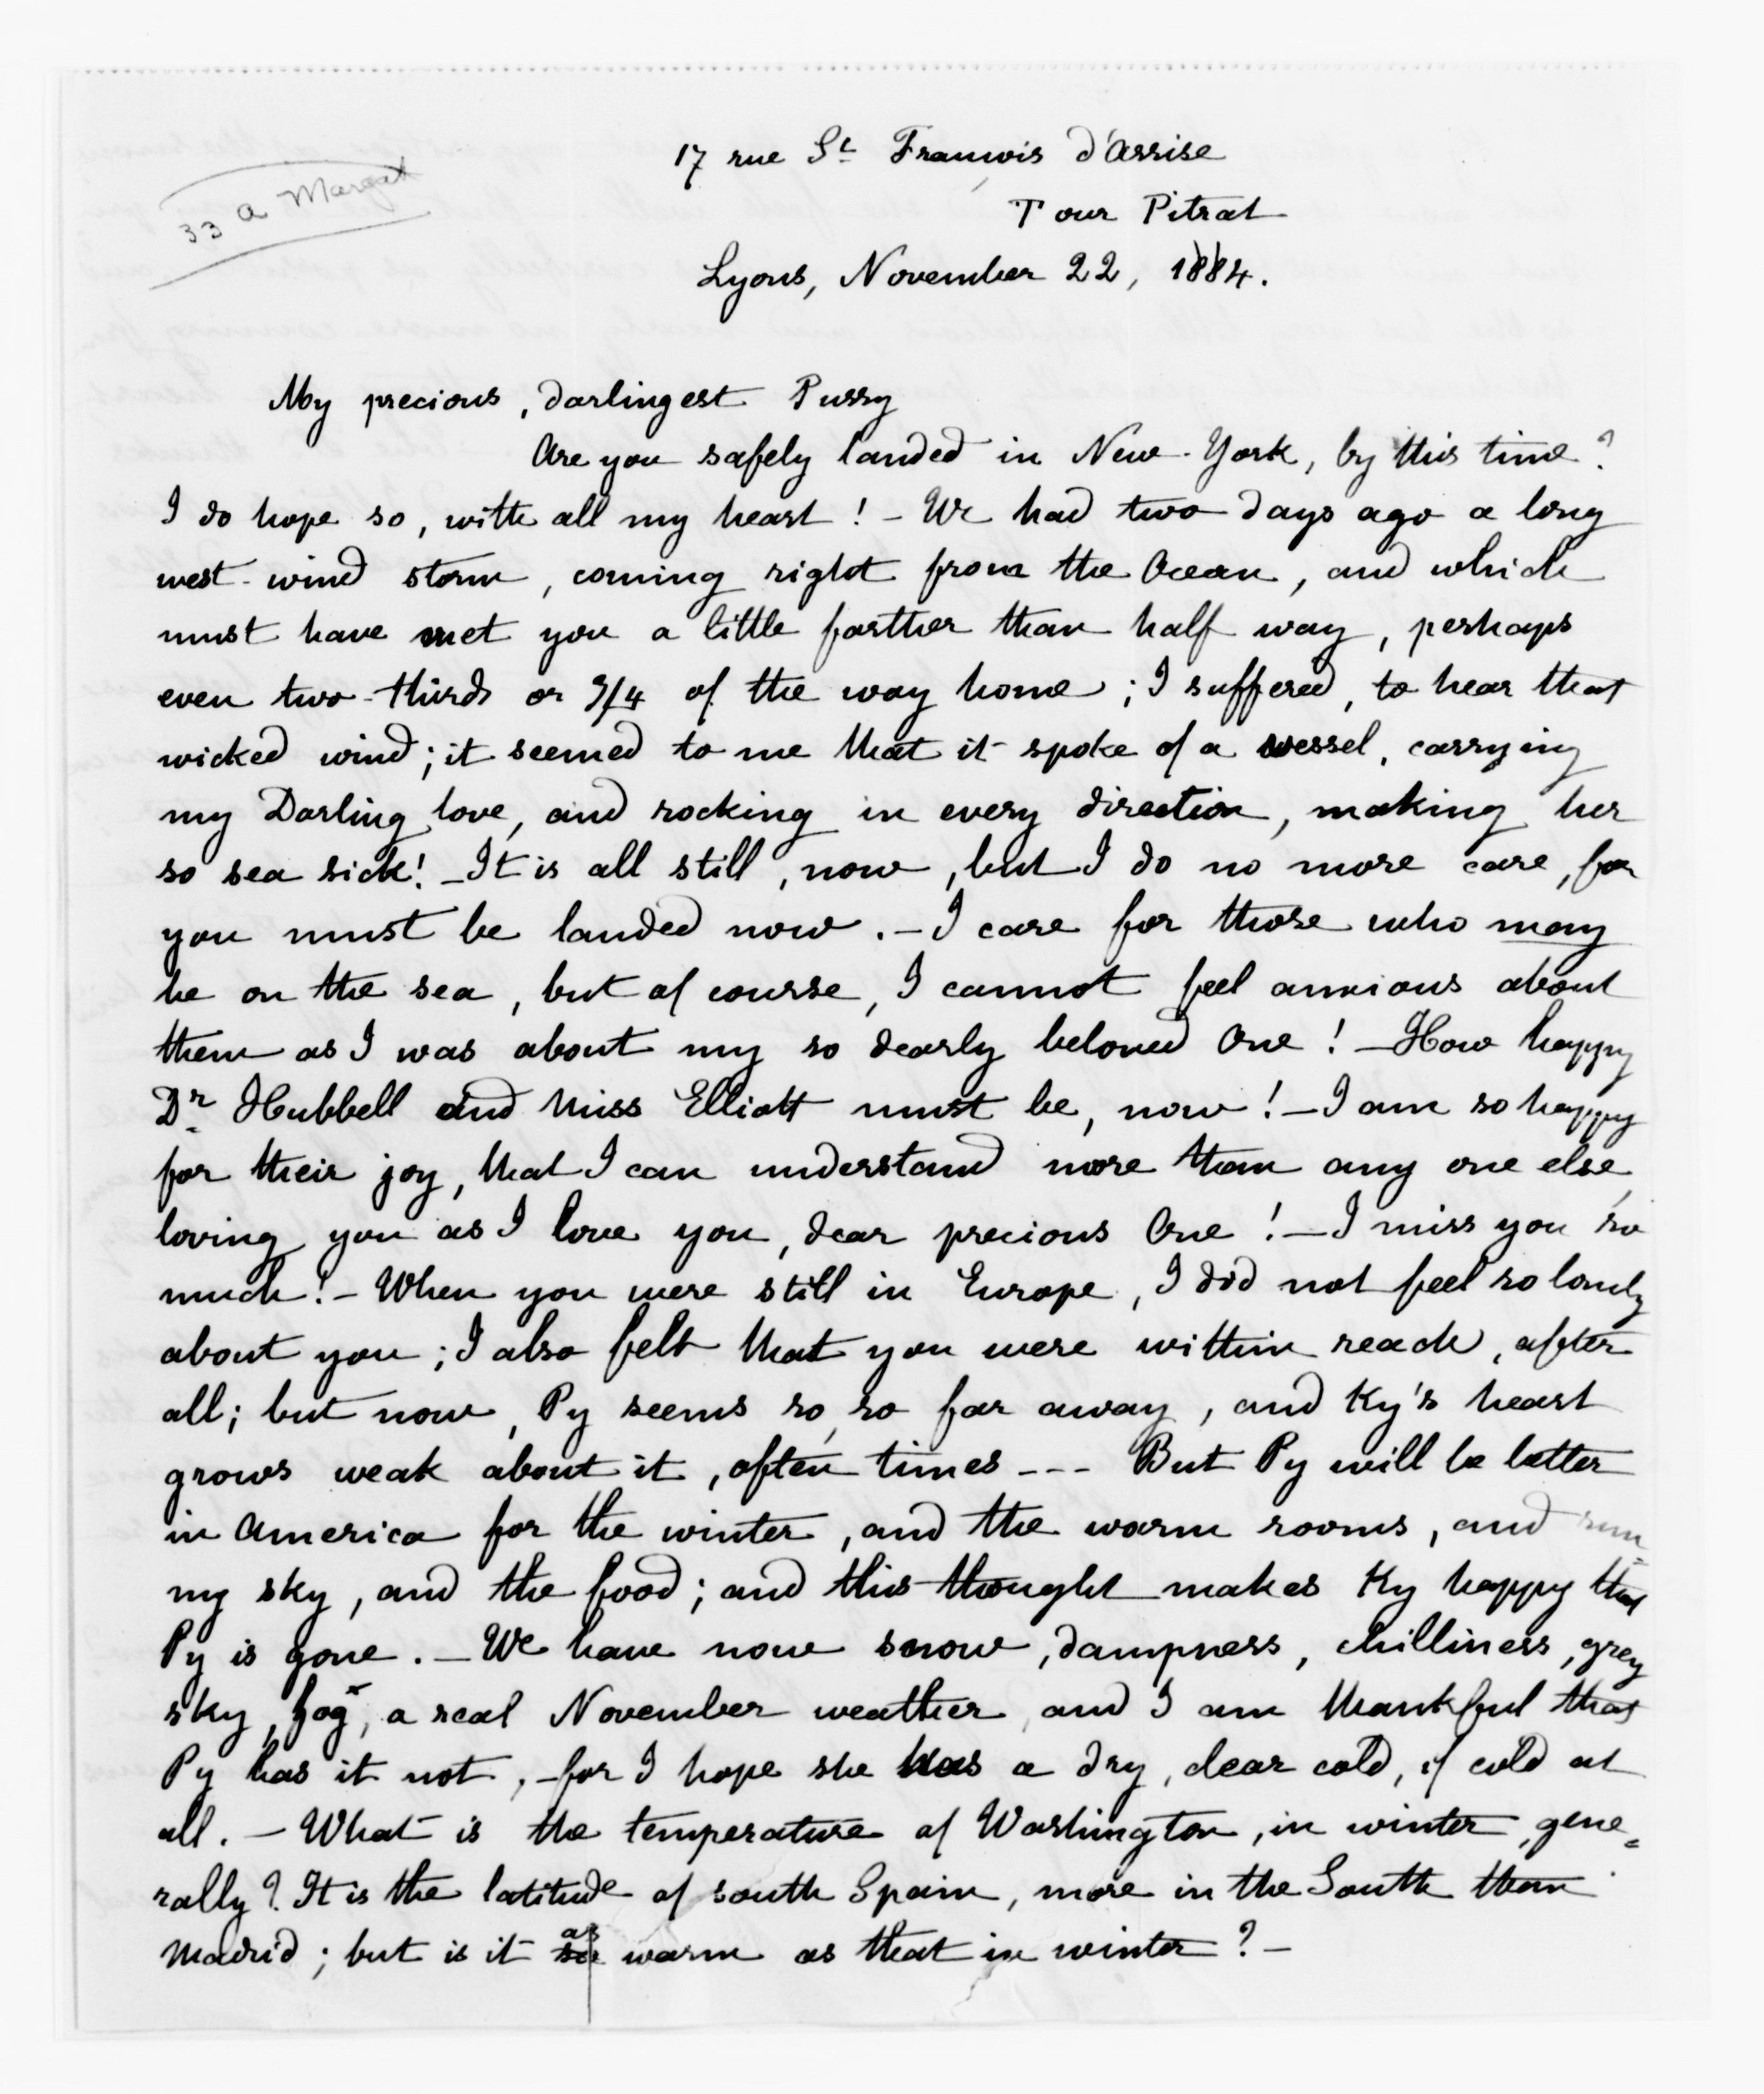 33 a Margat
17 rue St François d'Assise
Tour Pitrat
Lyons, November 22, 1884.
My precious, darlingest Pussy
Are you safely landed in New-York, by this time?
I do hope so, with all my heart! - We had two days ago a long
west-wind storm, coming right from the Ocean, and which
must have met you a little farther than half way, perhaps
even two-thirds or 3/4 of the way home; I suffered, to hear that
wicked wind; it seemed to me that it spoke of a vessel, carrying
my Darling love, and rocking in every direction, making her
so sea sick! - It is all still, now, but I do no more care, for
you must be landed now. - I care for those who may
be on the sea, but of course, I cannot feel anxious about
them as I was about my so dearly beloved One! - How happy
Dr Hubbell and Miss Elliott must be, now! - I am so happy
for their joy, that I can understand more than any one else,
loving you as I love you, dear precious One! - I miss you so
much! - When you were still in Europe, I did not feel so lonely
about you; I also felt that you were within reach, after
all; but now, Py seems so, so far away, and Ky's heart
grows weak about it, often times --- But Py will be better
in America for the winter, and the warm rooms, and sun=
ny sky, and the food; and this thought makes Ky happy that
Py is gone. - We have now snow, dampness, chilliness, grey
sky, fog, a real November weather, and I am thankful that
Py has it not, - for I hope she has a dry, clear cold, if cold at
all. - What is the temperature of Washington, in winter, gene=
rally? It is the latitude of south Spain, more in the South than
Madrid; but is it so as warm as that in winter? -